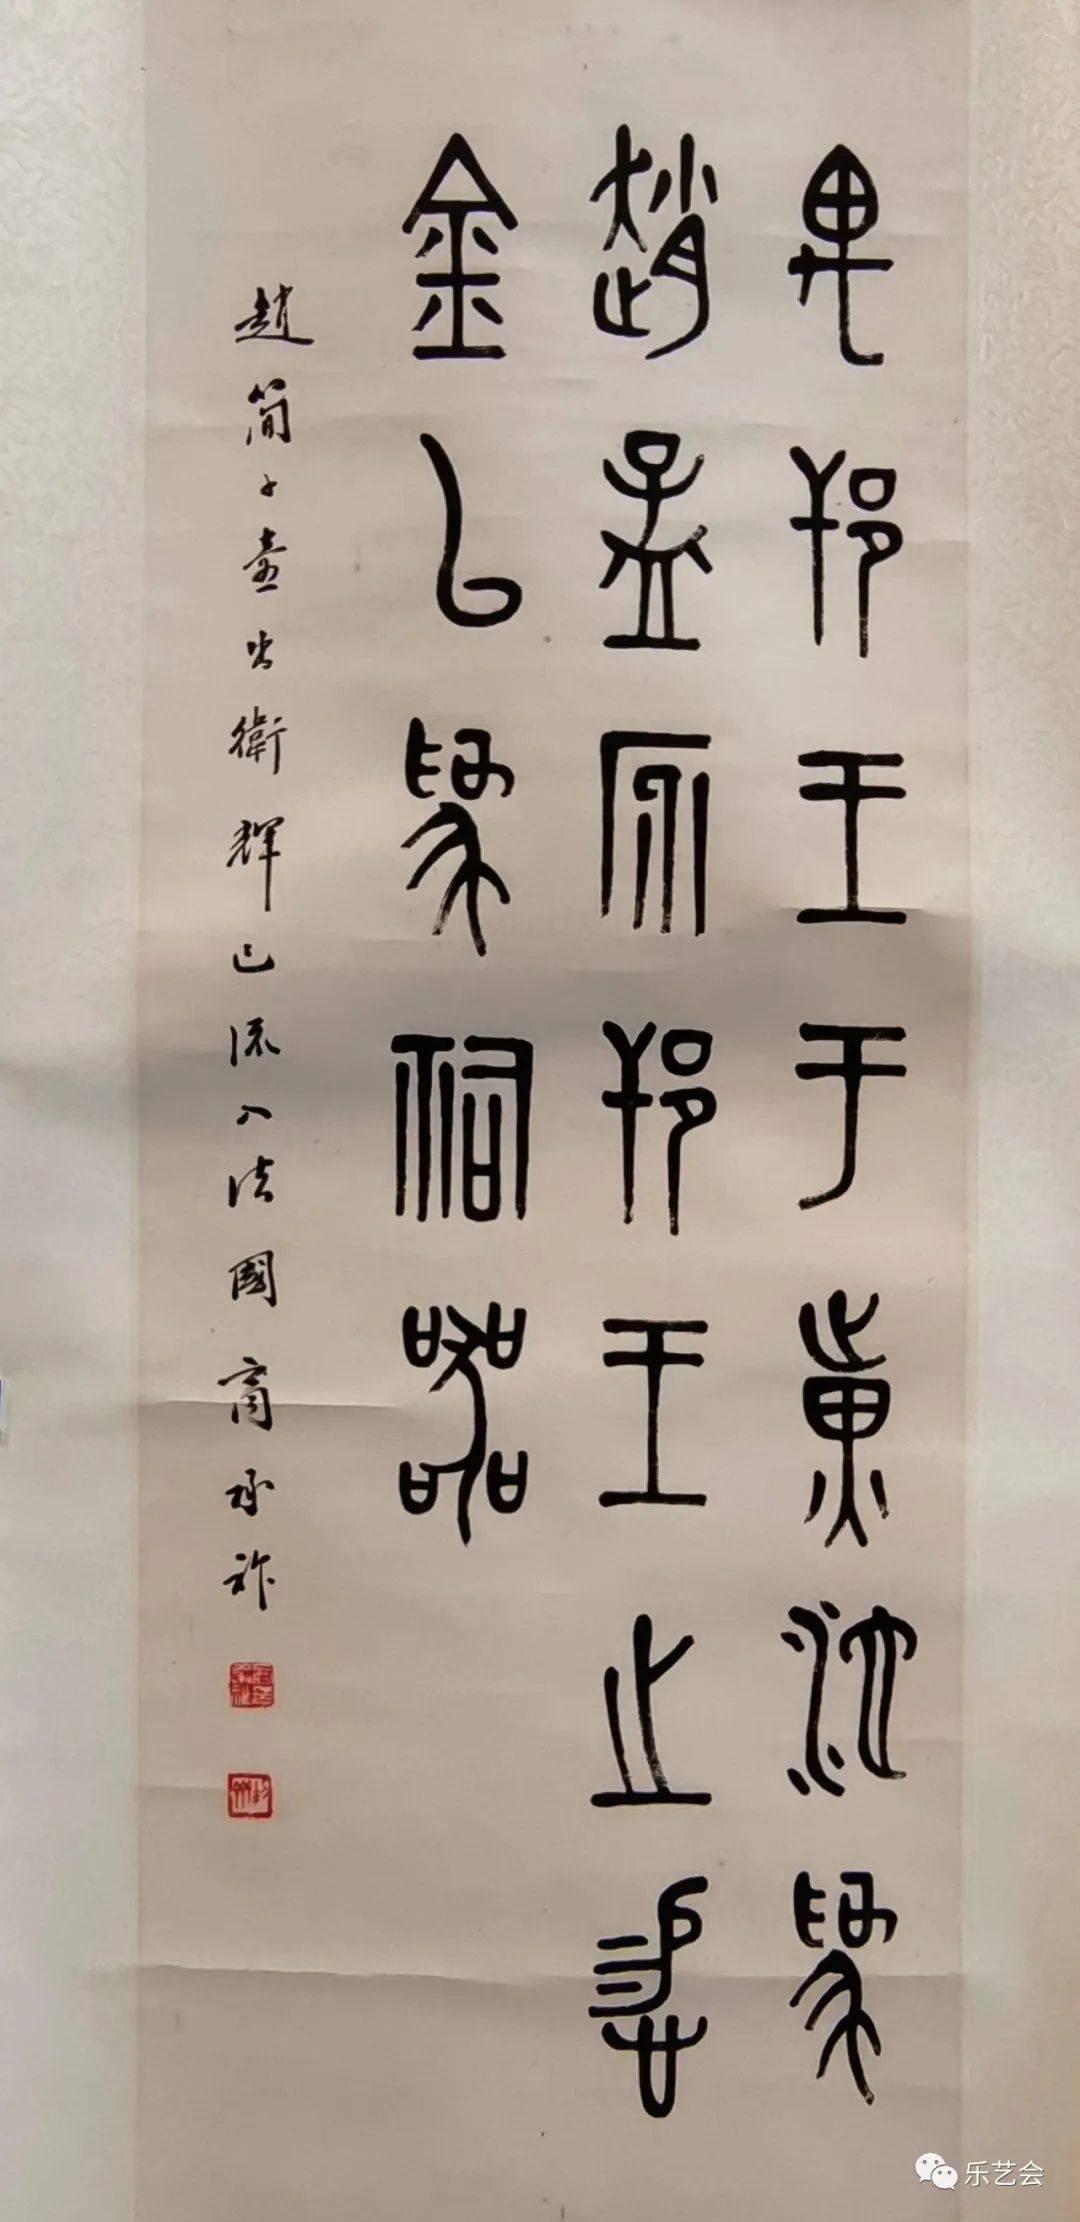 禺邗王于黃池為
趙孟庎邗王之惕
金台為祠器
趙簡子壺出衛輝已流入法國商承祚
乐艺会